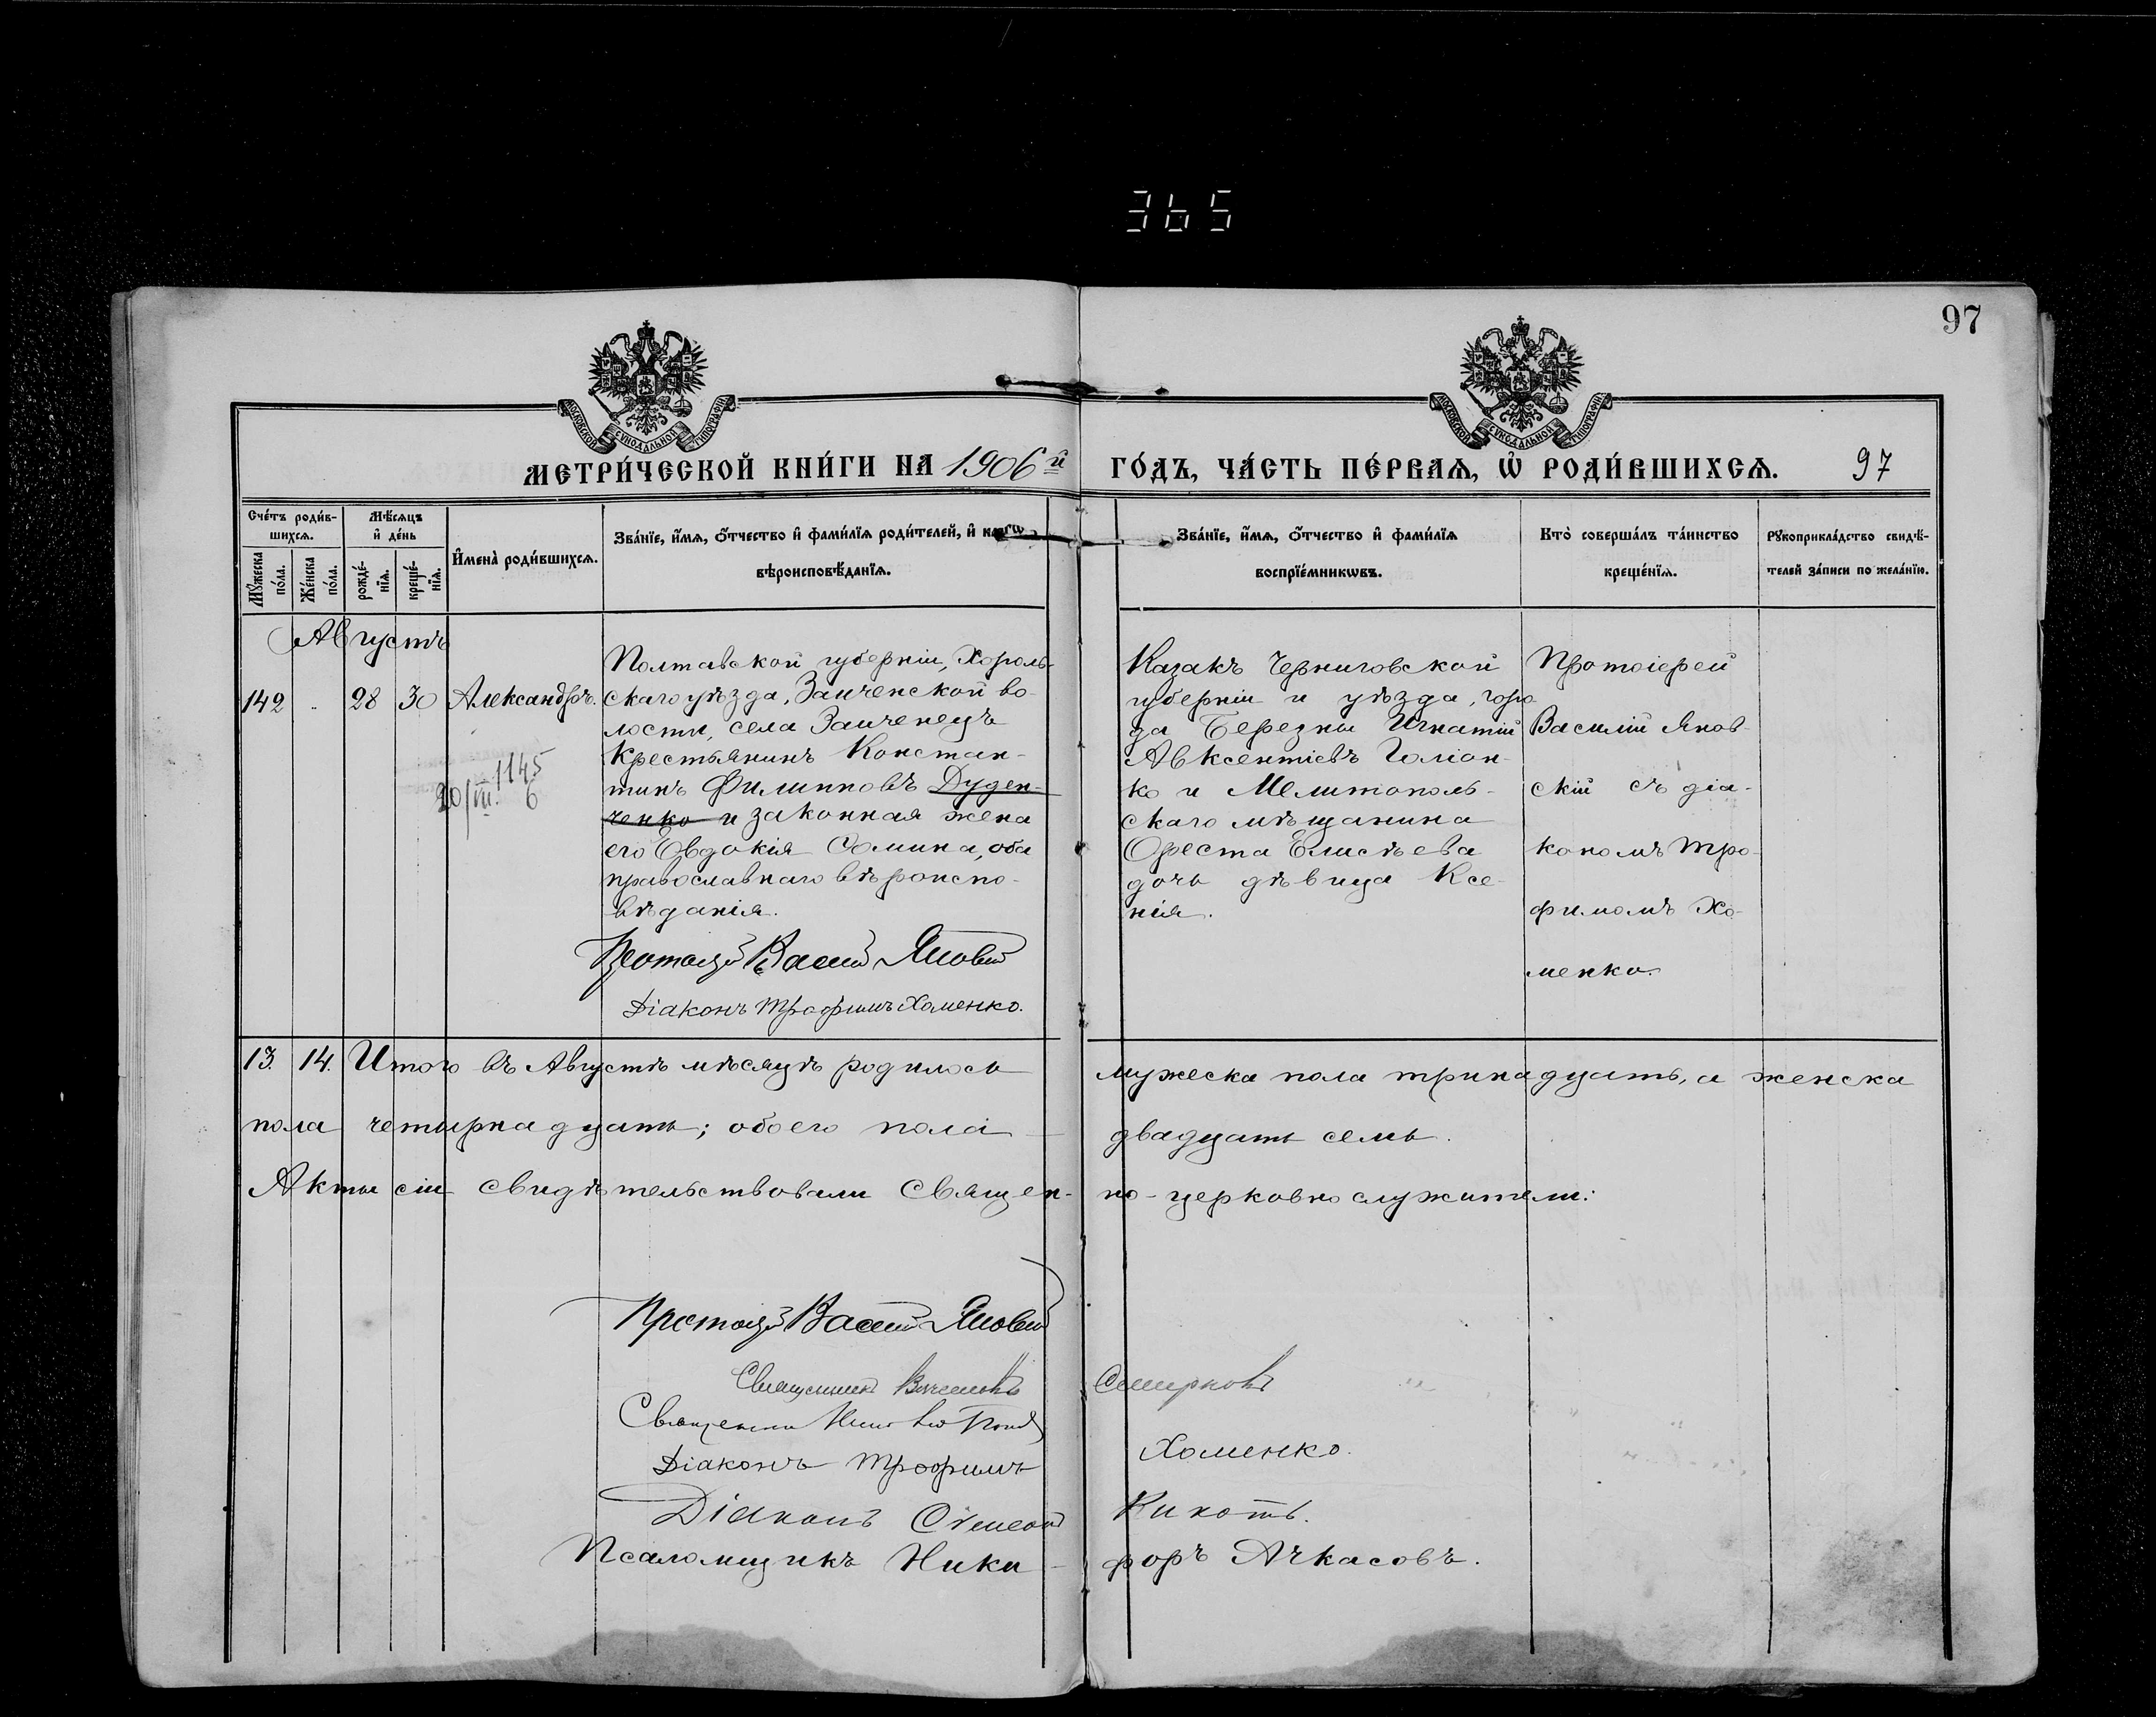 365
97
МОСКОВСКОЙ СѴНОДАЛЬНОЙ ТИПОГРАФІИ
МОСКОВСКОЙ СѴНОДАЛЬНОЙ ТИПОГРАФІИ
МЕТРИ́ЧЕСКОЙ КНИ́ГИ НА 1906й ГО́ДЪ, ЧА́СТЬ ПЕ́РВАѦ, Ѡ РОДИ́ВШИХСѦ. 97
Сче́тъ роди́в-
шихсѧ.
Мꙋ́жеска по́ла.
Же́нска по́ла.
Мѣ́сѧцъ
и҆ де́нь
рожде́-
нїѧ.
креще́-
нїѧ.
И҆мена̀ роди́вшихсѧ.
Зва́нїе, и҆́мѧ, ѻ҆́тчество и҆ фами́лїѧ роди́телей, и҆ како́гѡ
вѣроисповѣ́данїѧ.
Зва́нїе, и҆́мѧ, ѻ҆́тчество и҆ фами́лїѧ
воспрїе́мникѡвъ.
Кто̀ соверша́лъ та́инство
креще́нїѧ.
Рꙋкоприкла́дство свидѣ́-
телей за́писи по жела́нїю.
Августъ
142 28 30 Александръ.
1145
6
Полтавской губерніи, Хороль-
скаго уѣзда, Заиченской во-
лости, села Заиченецъ
крестьянинъ Констан-
тинъ Филипповъ Дуден-
ченко и законная жена
его Евдокія Сомина, оба
православнаго вѣроиспо-
вѣданія.
Протоіерей Василій Яновскій
Діаконъ Трофимъ Хоменко.
Казакъ Черниговской
губерніи и уѣзда, горо
да Березны Игнатій
Авксентіевъ Голіон-
ко и Мелитополь-
скаго мѣщанина
Ореста Елисѣева
дочь дѣвица Ксе-
нія.
Протоіерей
Василій Янов-
скій съ діа-
кономъ Тро-
фимомъ Хо-
менко.
13. 14. Итого въ Августѣ мѣсяцѣ родилось мужеска пола тринадцать, а женска
пола четырнадцать; обоего пола двадцать семь.
Акты сіи свидѣтельствовали Священ-но-церковно служители:
Протоіерей Василій Яновскій
Священникъ Смирновъ
Священникъ
Діаконъ Трофимъ Хоменко.
Діаконъ Сѵмеонъ Кикоть.
Псаломщикъ Ники-форъ Ачкасовъ.